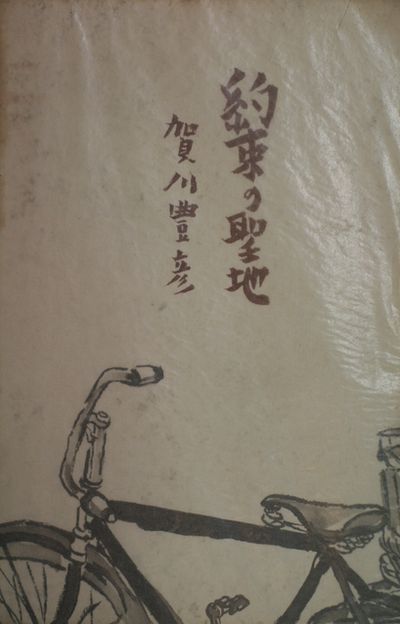 約束の聖地
賀川豊彦